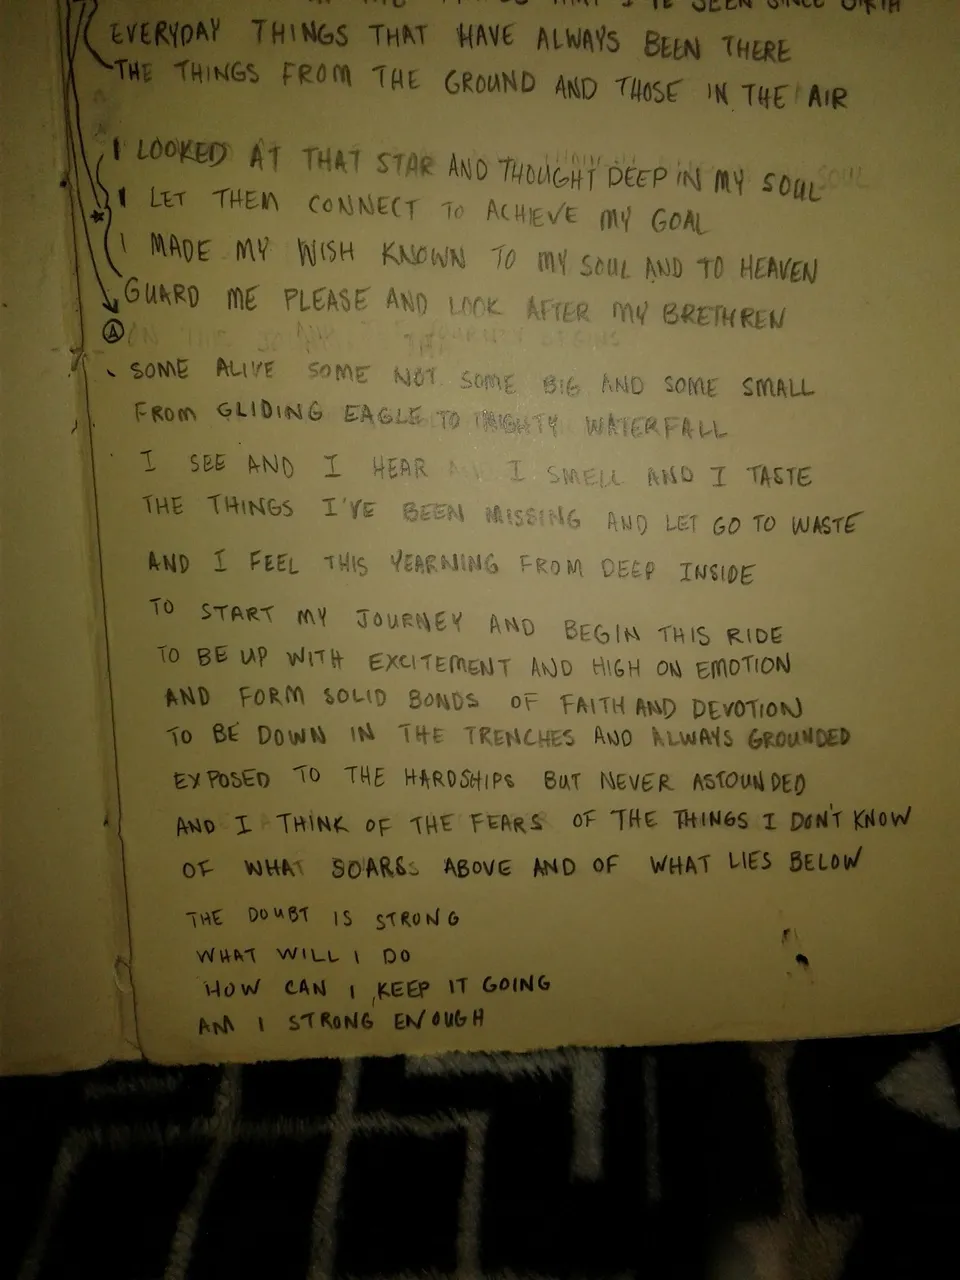 THINGS THAT I'VE SEEN SINCE BIRTH
EVERYDAY THINGS THAT HAVE ALWAYS BEEN THERE
THE THINGS FROM THE GROUND AND THOSE IN THE AIR
I LOOKED AT THAT STAR AND THOUGHT DEEP IN MY SOUL
I LET THEM CONNECT TO ACHIEVE MY GOAL
I MADE MY WISH KNOWN TO MY SOUL AND TO HEAVEN
GUARD ME PLEASE AND LOOK AFTER MY BRETHREN
A
SOME ALIVE SOME NOT SOME BIG AND SOME SMALL
FROM GLIDING EAGLE TO MIGHTY WATERFALL
I SEE AND I HEAR I SMELL AND I TASTE
THE THINGS I'VE BEEN MISSING AND LET GO TO WASTE
AND I FEEL THIS YEARNING FROM DEEP INSIDE
TO START MY JOURNEY AND BEGIN THIS RIDE
TO BE UP WITH EXCITEMENT AND HIGH ON EMOTION
AND FORM SOLID BONDS OF FAITH AND DEVOTION
TO BE DOWN IN THE TRENCHES AND ALWAYS GROUNDED
EXPOSED TO THE HARDSHIPS BUT NEVER ASTOUNDED
AND I THINK OF THE FEARS OF THE THINGS I DON'T KNOW
OF WHAT SOARS ABOVE AND OF WHAT LIES BELOW
THE DOUBT IS STRONG
WHAT WILL I DO
HOW CAN I KEEP IT GOING
AM I STRONG ENOUGH